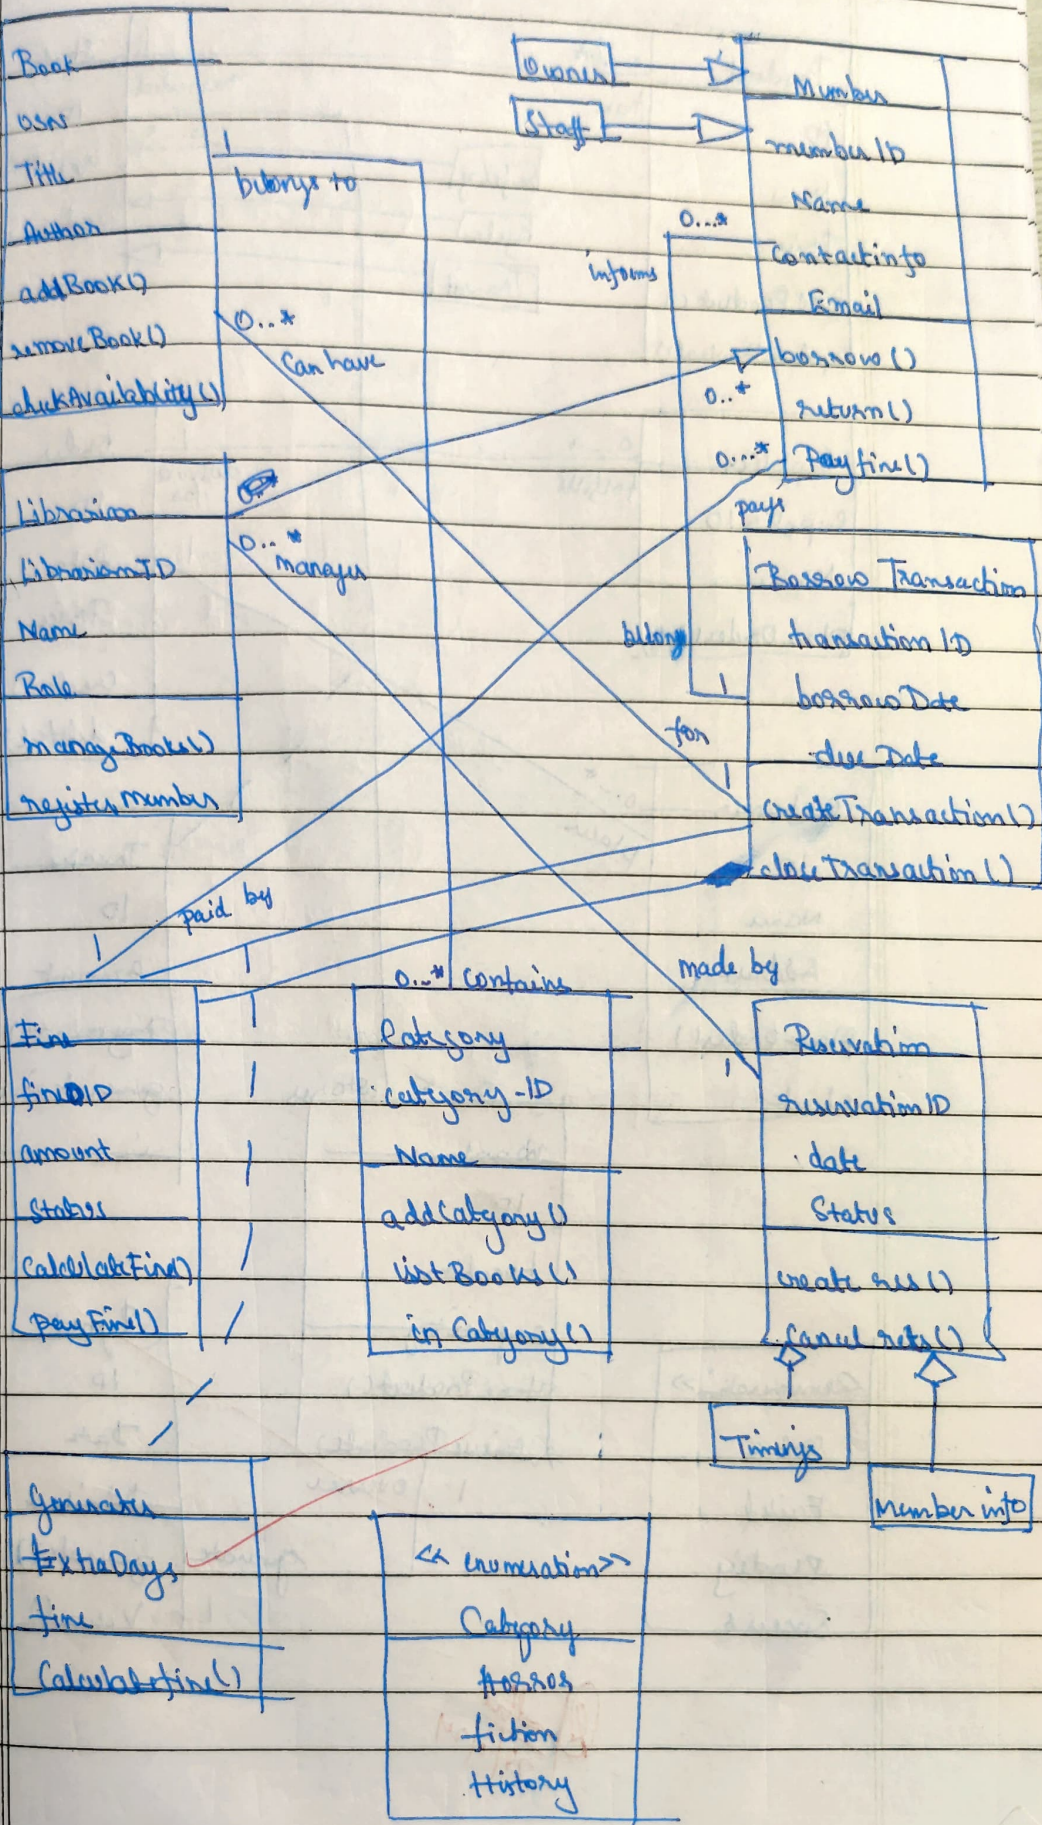 Book
OSN
Title
Author
addBook()
removeBook()
checkAvailablity()
1
belongs to
0...*
Can have
Owner
Staff
Member
memberID
Name
Contactinfo
Email
borrow()
return()
Payfine()
0...*
informs
0..*
0...*
pays
Librarian
LibrarianID
Name
Role
manageBooks()
register member
0...*
manages
Borrow Transaction
transaction ID
borrowDate
due Date
createTransaction()
closeTransaction()
belong
1
for
1
paid by
1
1
0...* contains
made by
1
Fine
fineID
amount
Status
CalculateFine()
payFine()
Category
category-ID
Name
addCategory()
listBooks()
in Category()
Reservation
reservationID
date
Status
create res()
Cancel res()
Timings
Member info
Generates
ExtraDays
fine
Calculatefine()
<< enumeration>>
Category
Horror
fiction
History